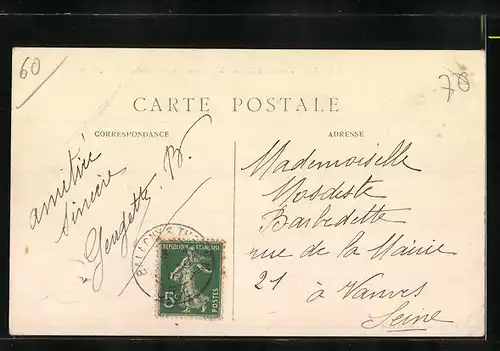 60
70
CARTE POSTALE
CORRESPONDANCE
amitié
sincère
B.
ADRESSE
Mademoiselle
Modeste
Barbedette
rue de la Mairie
21
à Vanves
Seine
REPUBLIQUE FRANÇAISE
5c
POSTES